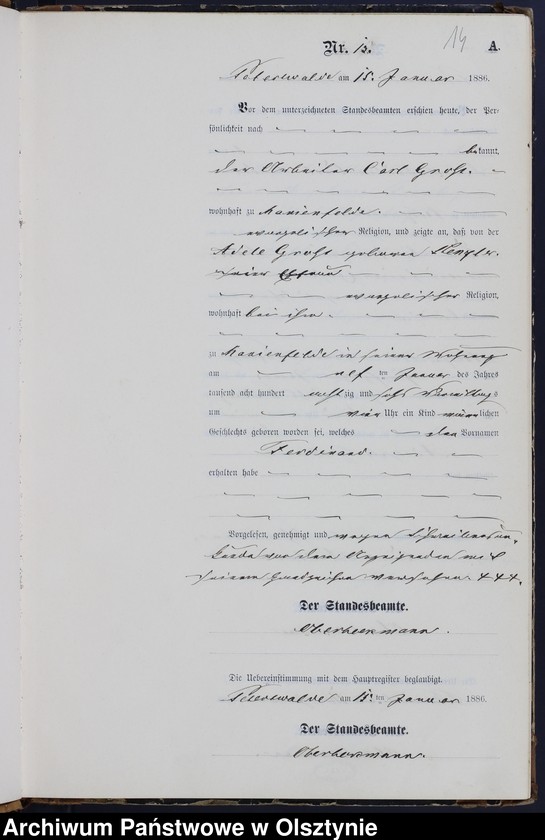 14
Nr. 15. A.
Peterswalde am 15. Januar 1886.
Vor dem unterzeichneten Standesbeamten erschien heute, der Per-
sönlichkeit nach
bekannt,
der Arbeiter Carl Groß.
wohnhaft zu Marienfelde.
evangelischer Religion, und zeigte an, daß von der
Adele Groß geborenen
seiner Ehefrau
evangelischer Religion,
wohnhaft bei ihm.
zu Marienfelde in seiner Wohnung
am elf ten Januar des Jahres
tausend acht hundert achtzig und sechs Vormittags
um vier Uhr ein Kind männlichen
Geschlechts geboren worden sei, welches den Vornamen
Ferdinand.
erhalten habe
Vorgelesen, genehmigt und wegen Schreibensun-
kunde von dem Anzeigenden mit
seinem Handzeichen versehen. +++.
Der Standesbeamte.
Die Uebereinstimmung mit dem Hauptregister beglaubigt.
Peterswalde am 15. ten Januar 1886.
Der Standesbeamte.
Archiwum Państwowe w Olsztynie